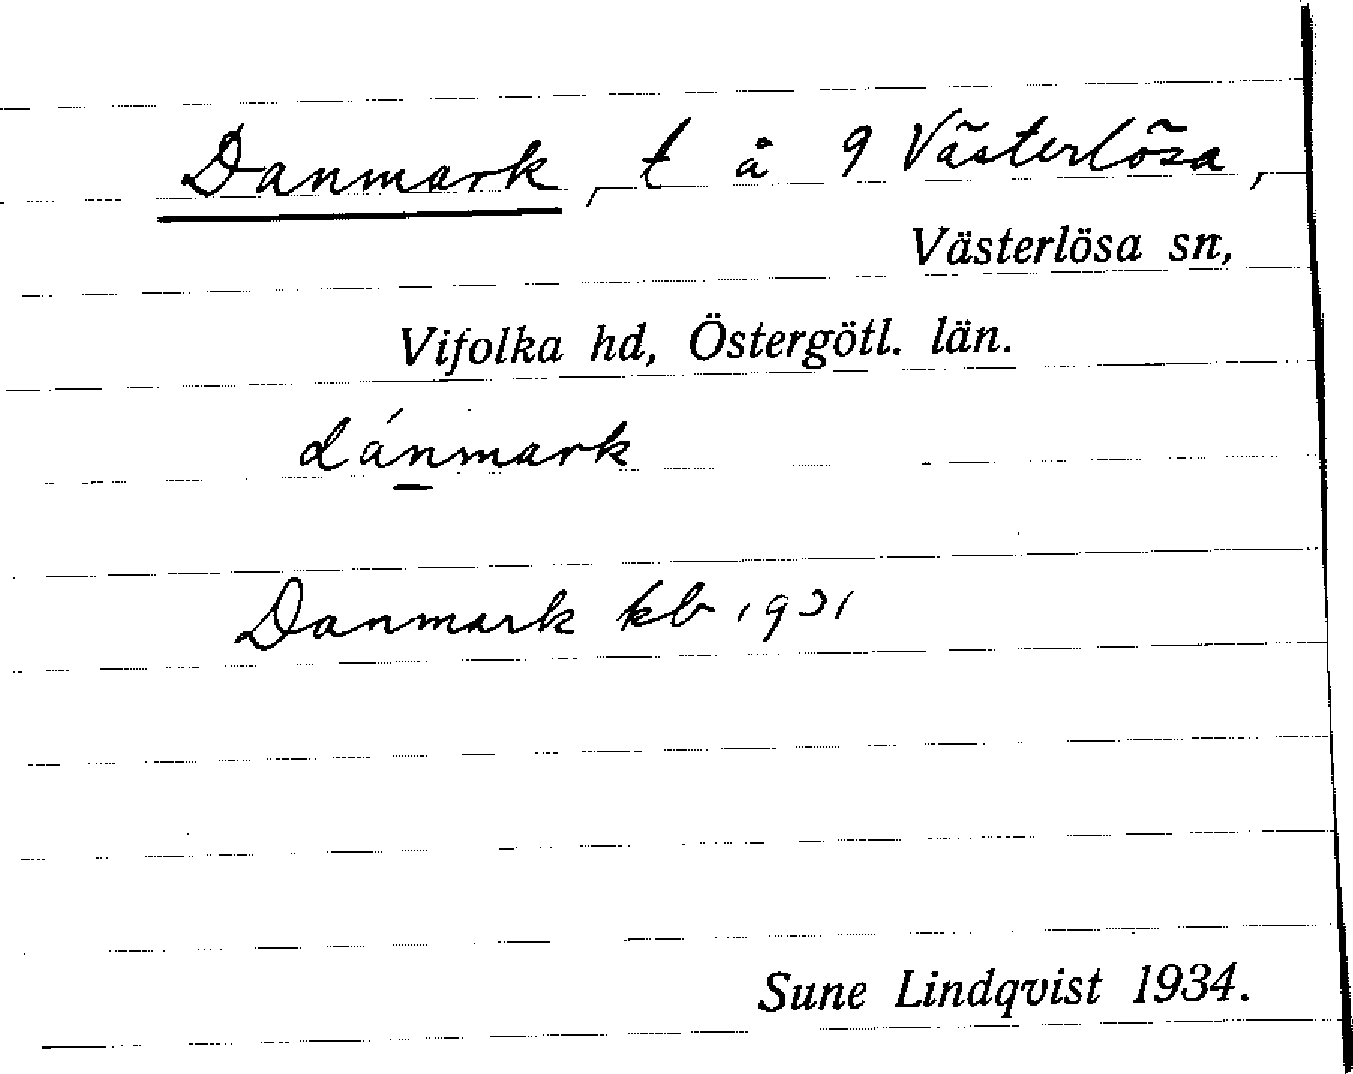 Danmark, t å 9 Västerlösa,
Västerlösa sn,
Vifolka hd, Östergötl. län.
dánmark
Danmark kb 1931
Sune Lindqvist 1934.